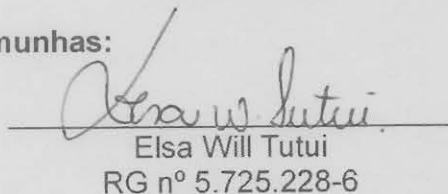 munhas:
Elsa W. Tutui.
Elsa Will Tutui
RG nº 5.725.228-6